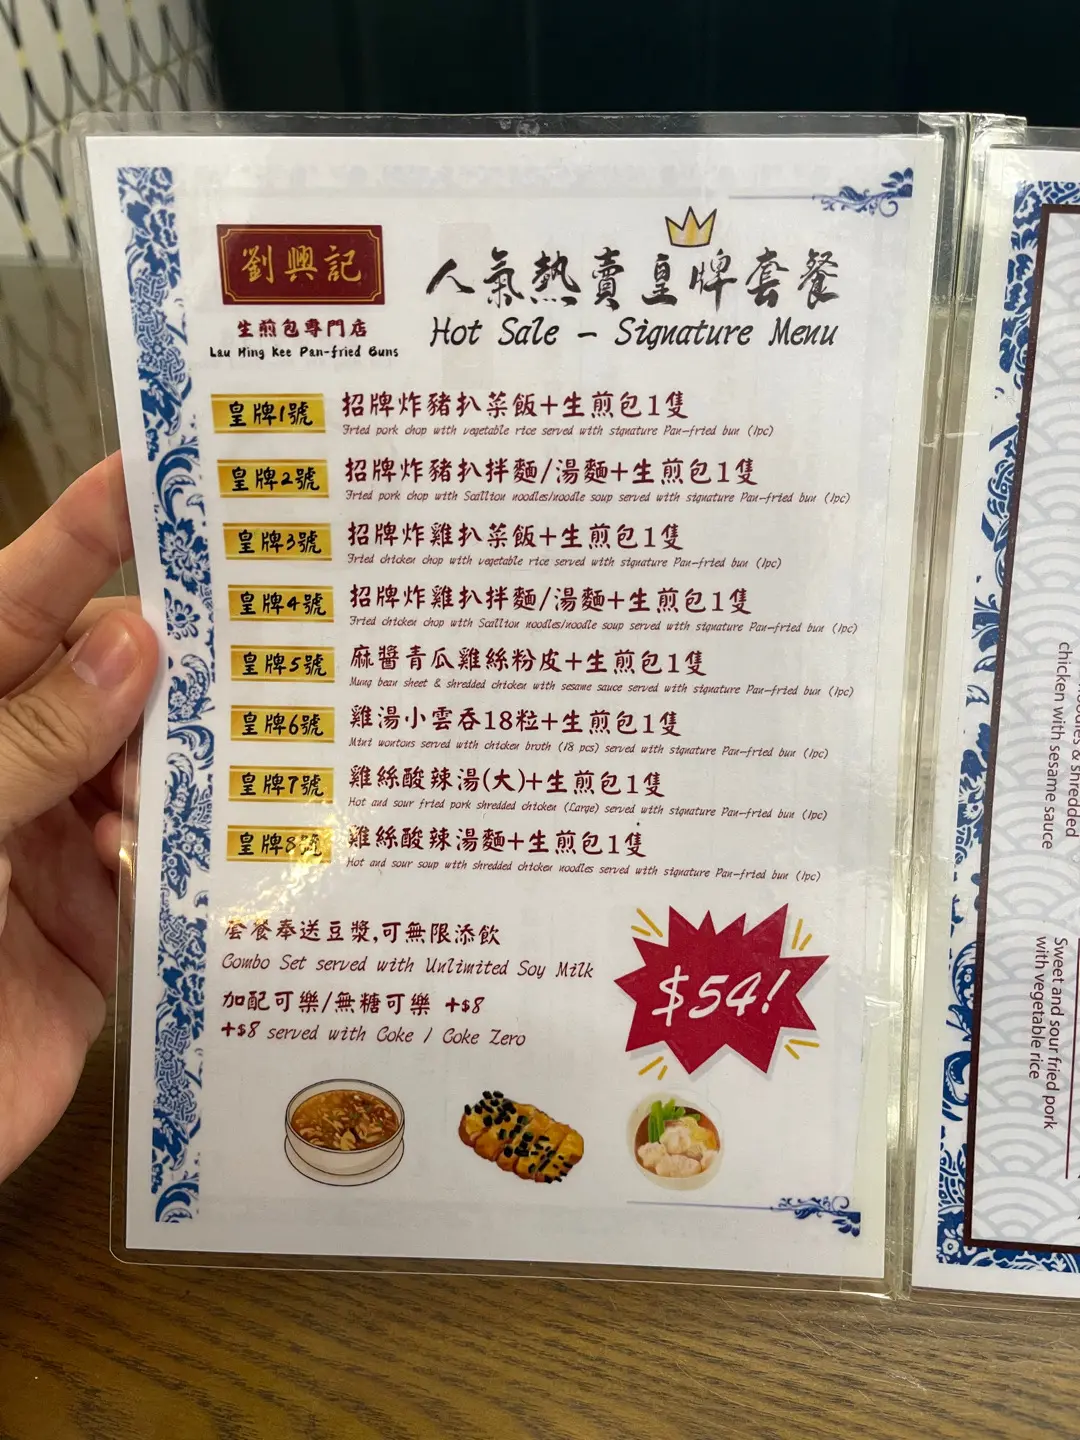 劉興記
生煎包專門店
Lau Hing Kee Pan-fried Buns
人氣熱賣皇牌套餐
Hot Sale – Signature Menu
皇牌1號 招牌炸豬扒菜飯+生煎包1隻
Fried pork chop with vegetable rice served with signature Pan-fried bun (1pc)
皇牌2號 招牌炸豬扒拌麵/湯麵+生煎包1隻
Fried pork chop with Scallion noodles/noodle soup served with signature Pan-fried bun (1pc)
皇牌3號 招牌炸雞扒菜飯+生煎包1隻
Fried chicken chop with vegetable rice served with signature Pan-fried bun (1pc)
皇牌4號 招牌炸雞扒拌麵/湯麵+生煎包1隻
Fried chicken chop with Scallion noodles/noodle soup served with signature Pan-fried bun (1pc)
皇牌5號 麻醬青瓜雞絲粉皮+生煎包1隻
Mung bean sheet & shredded chicken with sesame sauce served with signature Pan-fried bun (1pc)
皇牌6號 雞湯小雲吞18粒+生煎包1隻
Mini wontons served with chicken broth (18 pcs) served with signature Pan-fried bun (1pc)
皇牌7號 雞絲酸辣湯(大)+生煎包1隻
Hot and sour fried pork shredded chicken (Large) served with signature Pan-fried bun (1pc)
皇牌8號 雞絲酸辣湯麵+生煎包1隻
Hot and sour soup with shredded chicken noodles served with signature Pan-fried bun (1pc)
套餐奉送豆漿,可無限添飲
Combo Set served with Unlimited Soy Milk
加配可樂/無糖可樂 +$8
+$8 served with Coke / Coke Zero
$54!
& shredded
chicken with sesame sauce
Sweet and sour fried pork
with vegetable rice